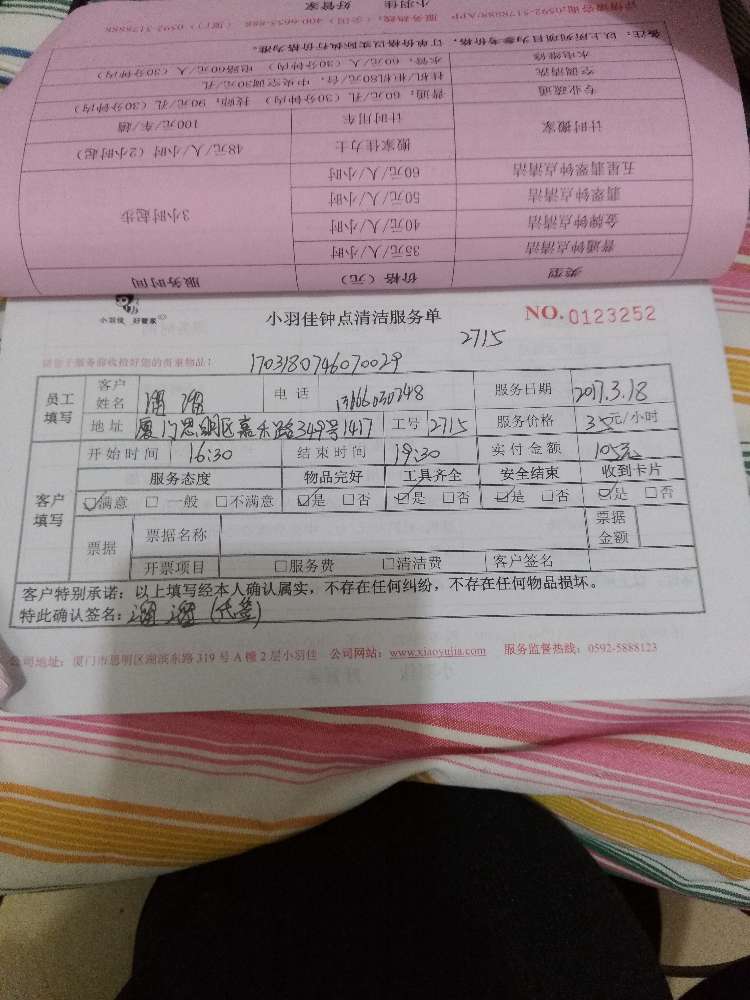 详情请咨询0592-5178988/APP 服务热线：（全国）400-6635-888 （厦门）0592-5178888
小羽佳 好管家
备注：以上所列项目为参考价格，订单价格以实际执行价格为准。
水电维修 水管：60元/人（30分钟内） 电路60元/人（30分钟内）
空调清洗 挂机/柜机80元/台，中央空调30元/孔
专业疏通 普通：60元/孔（30分钟内） 技师：90元/孔（30分钟内）
计时搬家 计时用车 100元/车/趟
搬家佳力士 48元/人/小时（2小时起）
五星翡翠钟点清洁 60元/人/小时
翡翠钟点清洁 50元/人/小时
金牌钟点清洁 40元/人/小时
普通钟点清洁 35元/人/小时
3小时起步
类型 价格（元） 服务时间
小羽佳 好管家
小羽佳钟点清洁服务单
NO.0123252
2715
请您于服务前收检好您的贵重物品！
1703180746070029
员工填写
客户姓名
电话
服务日期 2017.3.18
地址 厦门思明区嘉禾路349号1417 工号 2715 服务价格 35元/小时
客户填写
开始时间 16:30 结束时间 19:30 实付金额 105元
服务态度 物品完好 工具齐全 安全结束 收到卡片
☑满意 □一般 □不满意 ☑是 □否 ☑是 □否 ☑是 □否 ☑是 □否
票据 票据名称 票据金额
开票项目 □服务费 □清洁费 客户签名
客户特别承诺：以上填写经本人确认属实，不存在任何纠纷，不存在任何物品损坏。
特此确认签名： (代签)
公司地址：厦门市思明区湖滨东路319号A幢2层小羽佳 公司网站：www.xiaoyujia.com 服务监督热线：0592-5888123